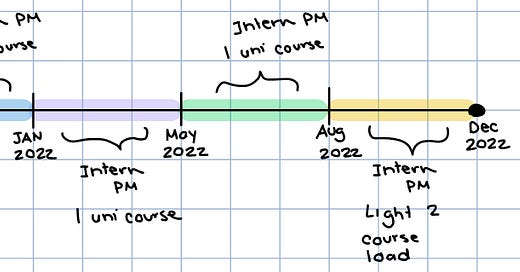 PM
Intern PM
1 uni course
JAN
2022
May
2022
Aug
2022
Dec
2022
Intern
PM
1 uni course
Intern
PM
Light 2
course
load